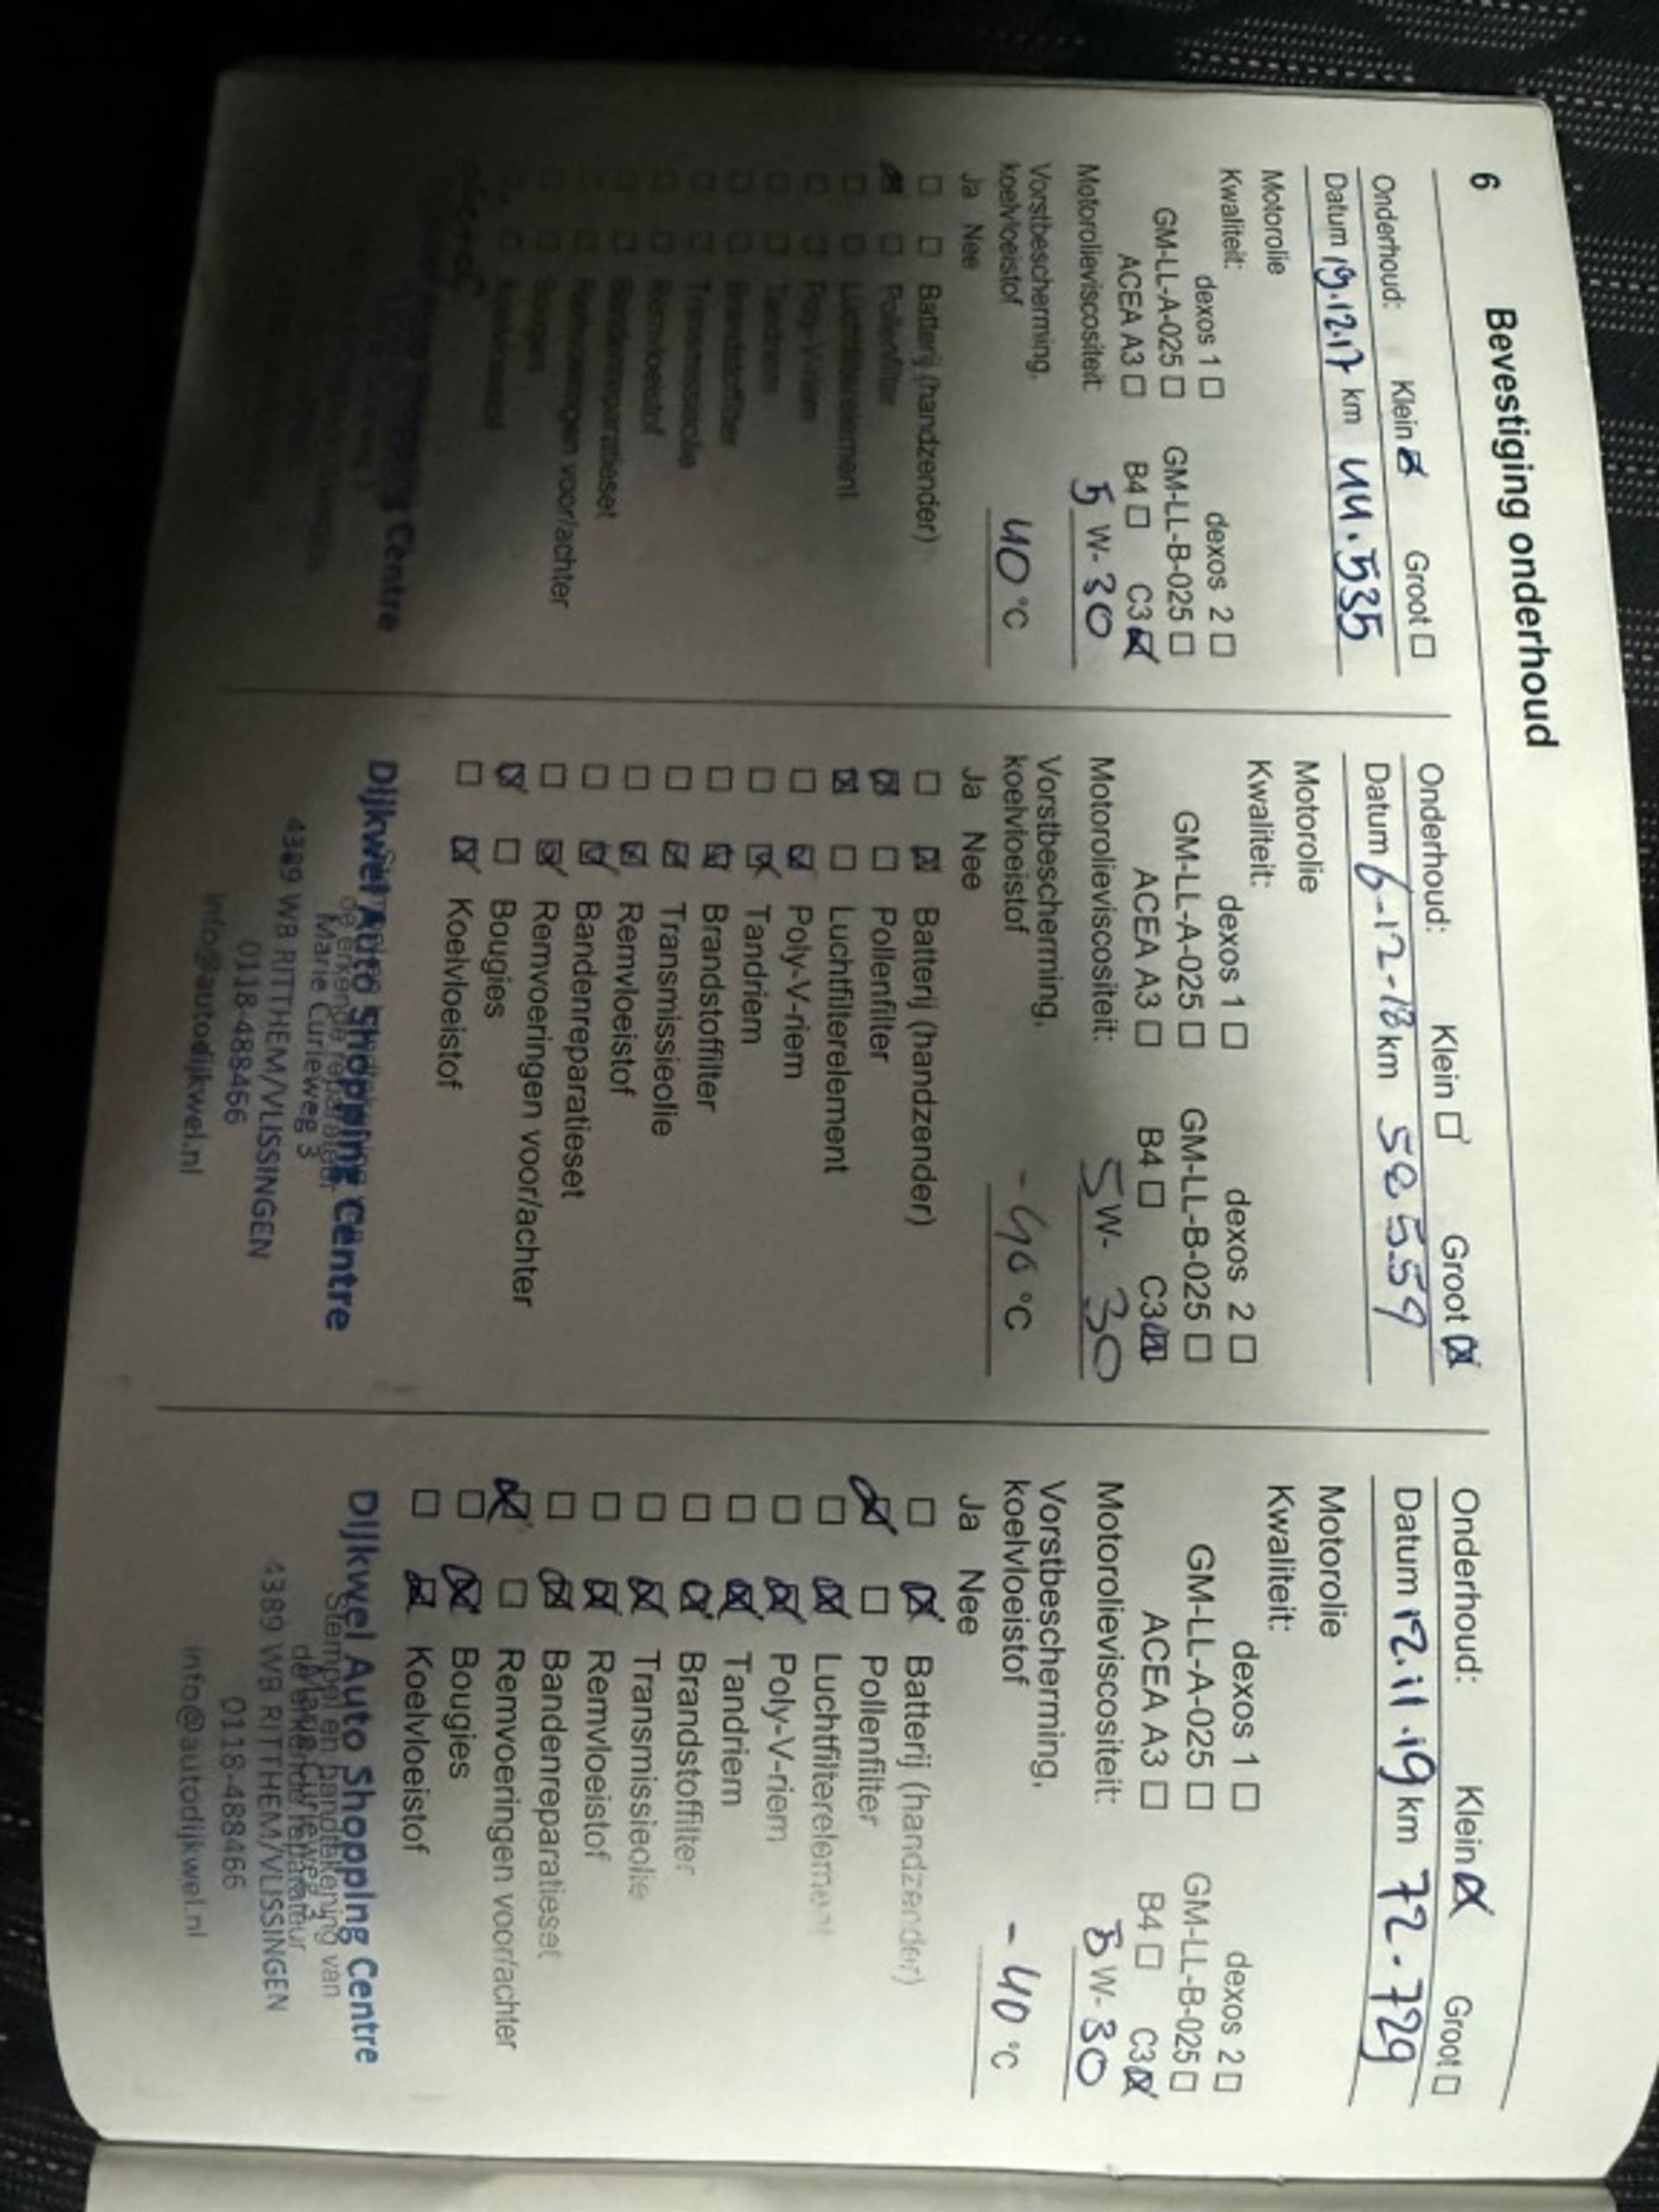 6
Bevestiging onderhoud
Onderhoud: Klein ☒ Groot ☐
Datum 19.12.17 km 44.535
Motorolie
Kwaliteit:
dexos 1 ☐ dexos 2 ☐
GM-LL-A-025 ☐ GM-LL-B-025 ☐
ACEA A3 ☐ B4 ☐ C3 ☒
Motorolieviscositeit: 5 W- 30
Vorstbescherming,
koelvloeistof 40 °C
Ja Nee
☐ ☐ Batterij (handzender)
☒ ☐ Pollenfilter
☐ ☐ Luchtfilterelement
☐ ☐ Poly-V-riem
☐ ☐ Tandriem
☐ ☐ Brandstoffilter
☐ ☐ Transmissieolie
☐ ☐ Remvloeistof
☐ ☐ Bandenreparatieset
☐ ☐ Remvoeringen voor/achter
☐ ☐ Bougies
☐ Koelvloeistof
Shopping Centre
Onderhoud: Klein ☐ Groot ☒
Datum 6-12-18 km 58559
Motorolie
Kwaliteit:
dexos 1 ☐ dexos 2 ☐
GM-LL-A-025 ☐ GM-LL-B-025 ☐
ACEA A3 ☐ B4 ☐ C3 ☒
Motorolieviscositeit: 5W- 30
Vorstbescherming,
koelvloeistof -40 °C
Ja Nee
☐ ☒ Batterij (handzender)
☒ ☐ Pollenfilter
☒ ☐ Luchtfilterelement
☐ ☒ Poly-V-riem
☐ ☒ Tandriem
☐ ☒ Brandstoffilter
☐ ☒ Transmissieolie
☐ ☒ Remvloeistof
☐ ☒ Bandenreparatieset
☐ ☒ Remvoeringen voor/achter
☒ ☐ Bougies
☐ ☒ Koelvloeistof
Dijkwel Auto Shopping Centre
de erkende reparateur
Marie Curieweg 3
4389 WB RITTHEM/VLISSINGEN
0118-488466
info@autodijkwel.nl
Onderhoud: Klein ☒ Groot ☐
Datum 12.11.19 km 72.729
Motorolie
Kwaliteit:
dexos 1 ☐ dexos 2 ☐
GM-LL-A-025 ☐ GM-LL-B-025 ☐
ACEA A3 ☐ B4 ☐ C3 ☒
Motorolieviscositeit: 5 W- 30
Vorstbescherming,
koelvloeistof -40 °C
Ja Nee
☐ ☒ Batterij (handzender)
☒ ☐ Pollenfilter
☐ ☒ Luchtfilterelement
☐ ☒ Poly-V-riem
☐ ☒ Tandriem
☐ ☒ Brandstoffilter
☐ ☒ Transmissieolie
☐ ☒ Remvloeistof
☐ ☒ Bandenreparatieset
☒ ☐ Remvoeringen voor/achter
☐ ☒ Bougies
☐ ☒ Koelvloeistof
Dijkwel Auto Shopping Centre
Stempel en handtekening van
de erkende reparateur
Marie Curieweg 3
4389 WB RITTHEM/VLISSINGEN
0118-488466
info@autodijkwel.nl